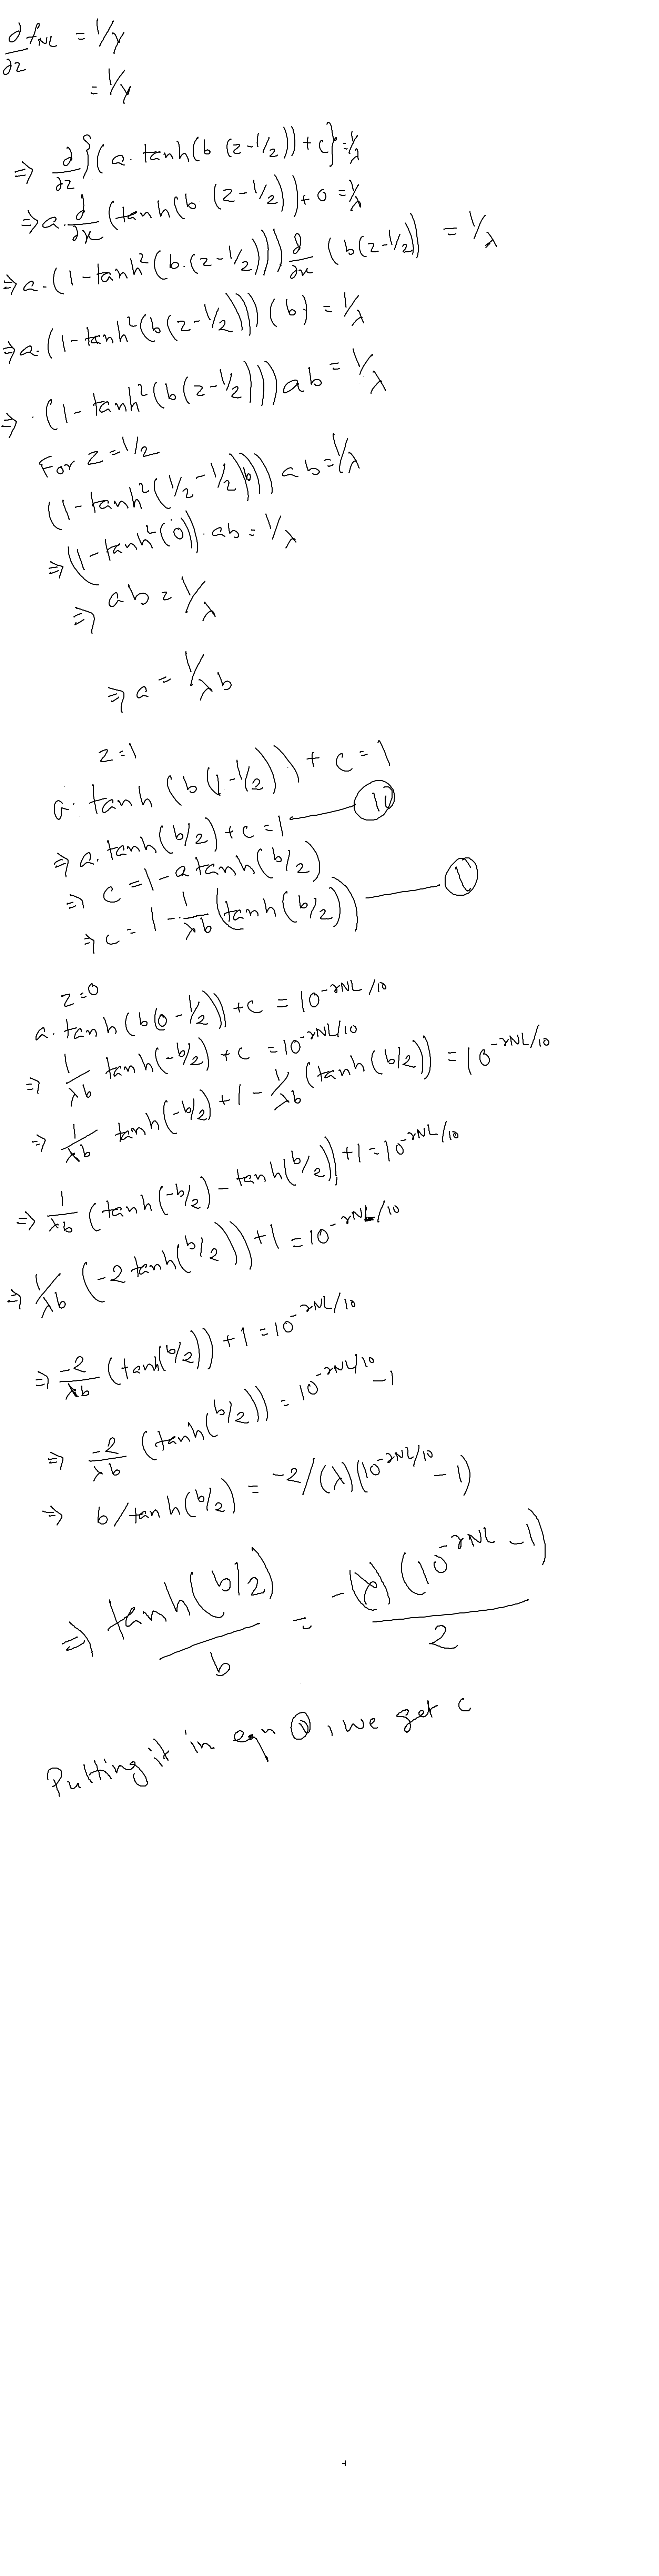 ∂/∂z fNL = 1/γ
= 1/γ
⇒ ∂/∂z {(a. tanh(b (z-1/2)) + c} = 1/λ
⇒ a. ∂/∂x (tanh(b. (z-1/2)) + 0 = 1/λ
⇒ a. (1-tanh²(b.(z-1/2))) ∂/∂x (b(z-1/2)) = 1/λ
⇒ a. (1-tanh²(b(z-1/2))) (b) = 1/λ
⇒ . (1-tanh²(b(z-1/2))) ab = 1/λ
For z = 1/2
(1-tanh²(1/2-1/2)b)) ab = 1/λ
⇒ (1-tanh²(0)). ab = 1/λ
⇒ ab = 1/λ
⇒ a = 1/λb
z=1
a. tanh (b(1-1/2)) + c = 1
⇒ a. tanh(b/2) + c = 1 10
⇒ c = 1 - a tanh(b/2)
⇒ c = 1 - 1/λb (tanh(b/2))
z=0
a. tanh(b(0-1/2)) + c = 10^-rNL/10
⇒ 1/λb tanh(-b/2) + c = 10^-rNL/10
⇒ 1/λb tanh(-b/2) + 1 - 1/λb (tanh(b/2)) = 10^-rNL/10
⇒ 1/λb (tanh(-b/2) - tanh(b/2)) + 1 = 10^-rNL/10
⇒ 1/λb (-2 tanh(b/2)) + 1 = 10^-rNL/10
⇒ -2/λb (tanh(b/2)) + 1 = 10^-rNL/10
⇒ -2/λb (tanh(b/2)) = 10^-rNL/10 - 1
⇒ b/tanh(b/2) = -2/(λ)(10^-rNL/10 - 1)
⇒ tanh(b/2)/b = -(λ)(10^-rNL - 1)/2
Putting it in eqn , we get c